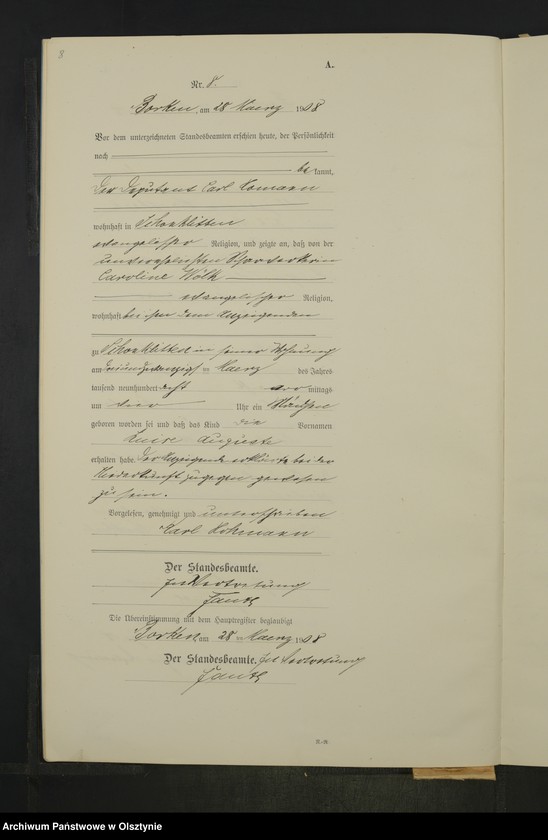 8
A.
Nr. 8.
Borken, am 28 Maerz 1908
Vor dem unterzeichneten Standesbeamten erschien heute, der Persönlichkeit
nach
be kannt,
der Deputant Carl Homann
wohnhaft in Schönklitten
evangelischer Religion, und zeigte an, daß von der
unverehelichten
Caroline Wölk
evangelischer Religion,
wohnhaft bei dem Anzeigenden
zu Schönklitten in seiner Wohnung
am dreiundzwanzigsten Maerz des Jahres
tausend neunhundert acht vor mittags
um Uhr ein Mädchen
geboren worden sei und daß das Kind die Vornamen
Luise Auguste
erhalten habe. Der Anzeigende erklärte bei der
Niederkunft zugegen gewesen
zu sein.
Vorgelesen, genehmigt und unterschrieben
Carl Hohmann
Der Standesbeamte.
In Vertretung
Die Übereinstimmung mit dem Hauptregister beglaubigt
Borken, am 28 ten Maerz 1908
Der Standesbeamte. In Vertretung
Archiwum Państwowe w Olsztynie